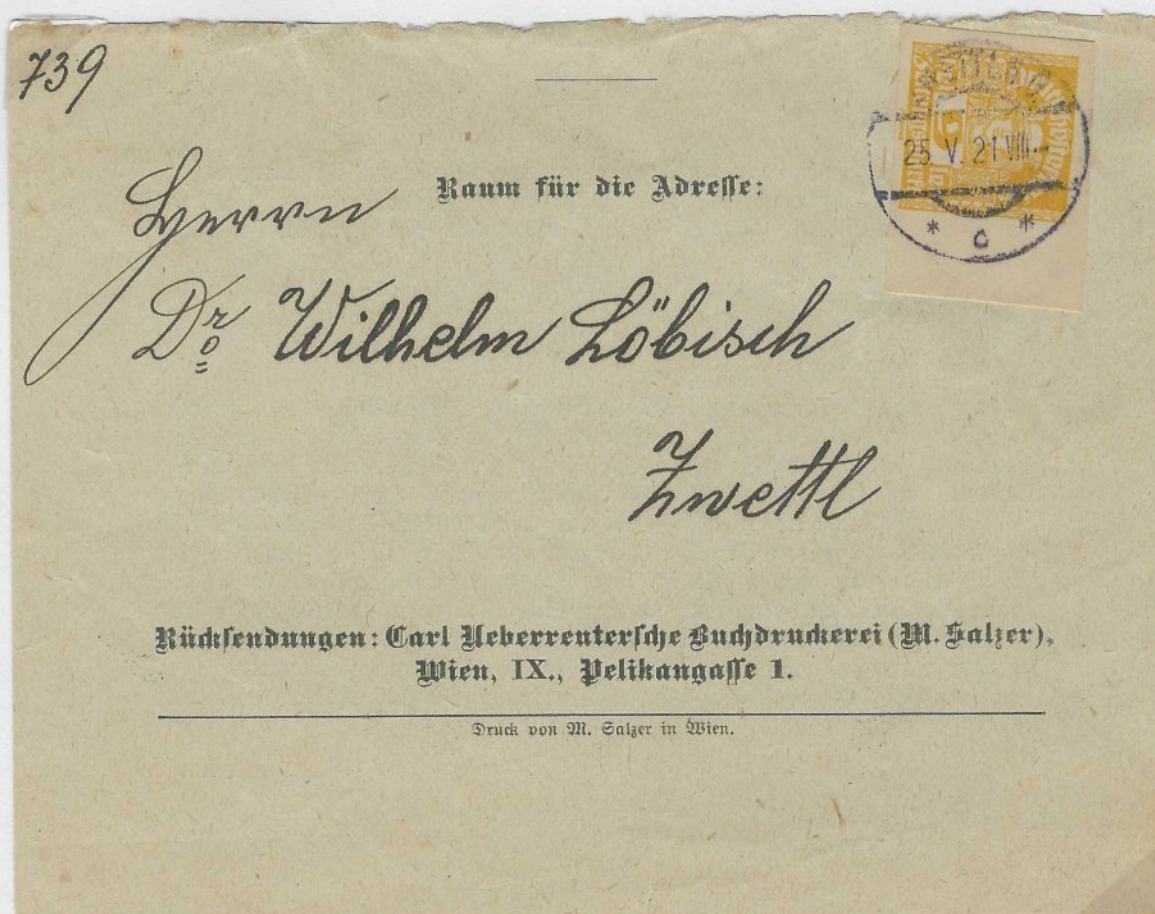 739
25. V. 21 VIII
* c *
Raum für die Adresse:
Herrn
Dr. Wilhelm Löbisch
Zwettl
Rücksendungen: Carl Ueberreutersche Buchdruckerei (M. Salzer),
Wien, IX., Pelikangasse 1.
Druck von M. Salzer in Wien.